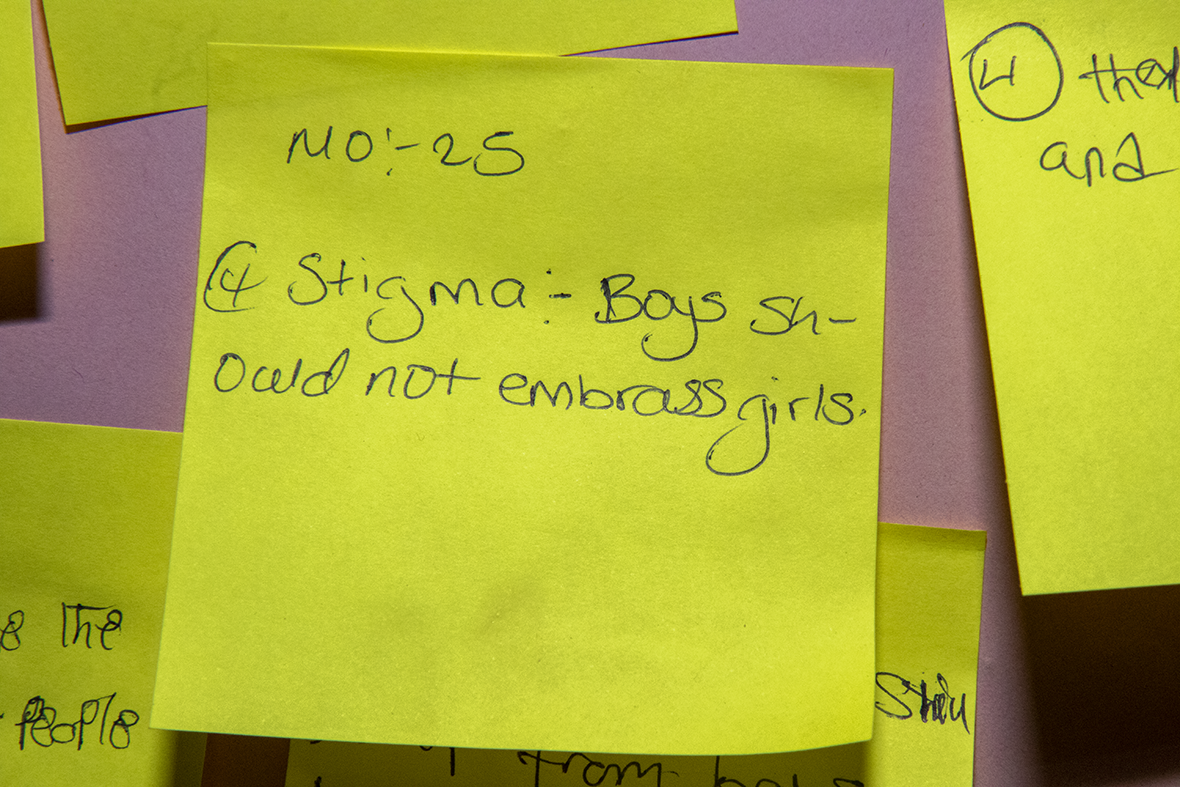 MO:-25
④ Stigma:- Boys sh-
ould not embrass girls.
④
and
The
People
from